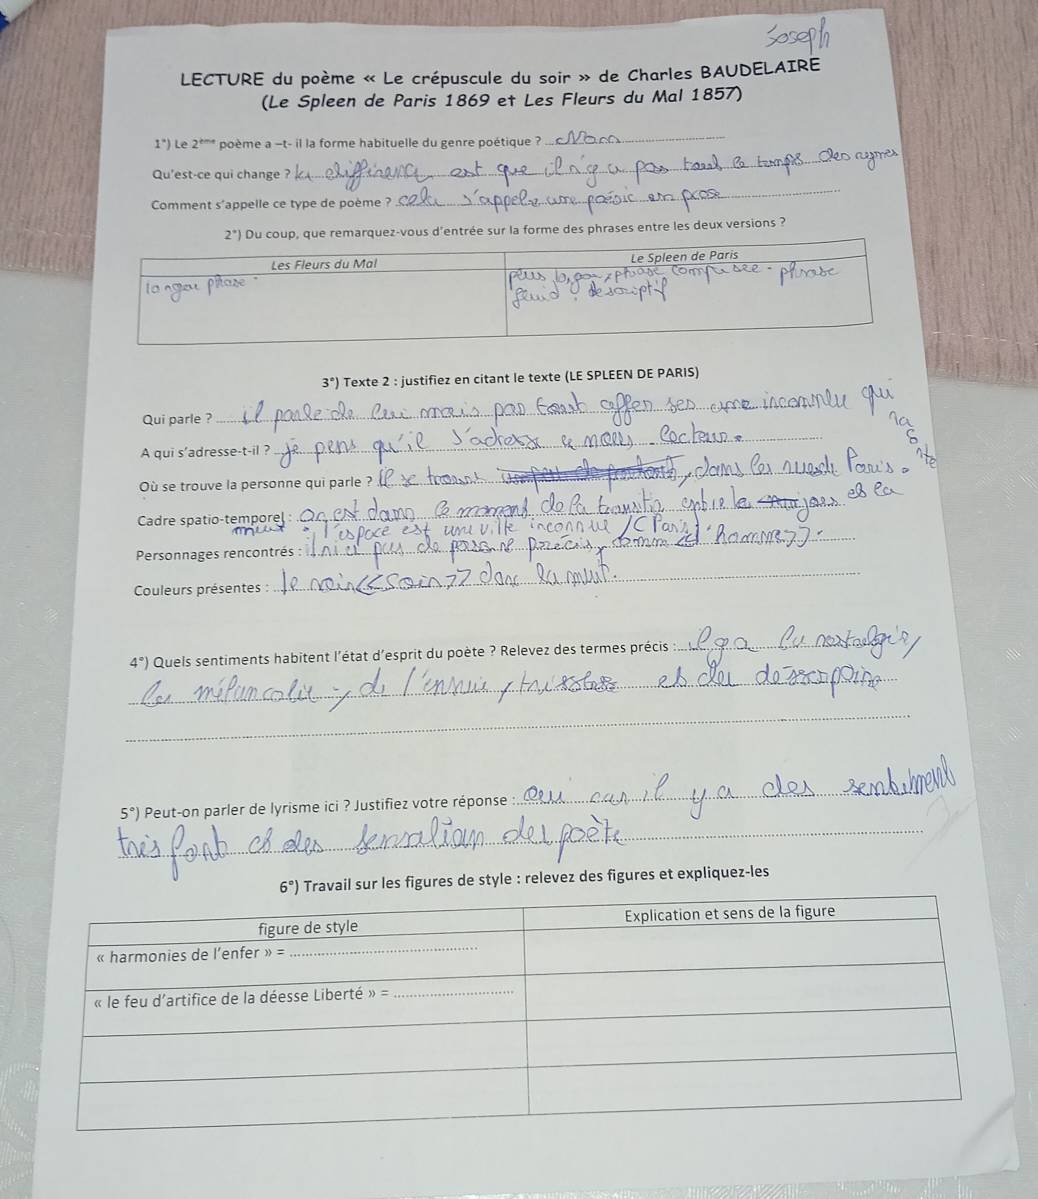 Joseph
LECTURE du poème « Le crépuscule du soir » de Charles BAUDELAIRE
(Le Spleen de Paris 1869 et Les Fleurs du Mal 1857)
1°) Le 2ème poème a –t- il la forme habituelle du genre poétique ? Non
Qu'est-ce qui change ? la différence est que il n'y a pas tout le temps des rymes
Comment s'appelle ce type de poème ? cela s'appele une poésie en prose
2°) Du coup, que remarquez-vous d'entrée sur la forme des phrases entre les deux versions ?
Les Fleurs du Mal
Le Spleen de Paris
phrase
descriptif
3°) Texte 2 : justifiez en citant le texte (LE SPLEEN DE PARIS)
Qui parle ? il parle de lui mais pas tout inconnu qui
A qui s'adresse-t-il ? je pens qu'il s'adress a nous lecteur.
Où se trouve la personne qui parle ? Il se trouve dans les rues de Paris.
Cadre spatio-temporel : On est dans le moment de la transition entre le jour et la
nuit. l'espace est une ville inconnue (Paris)
Personnages rencontrés : il n'y a pas de personne précis, homme >>.
Couleurs présentes : le noir << soir >> donc la nuit.
4°) Quels sentiments habitent l'état d'esprit du poète ? Relevez des termes précis : il y a la nostalgie,
la mélancolie, de l'ennuie, tristesse et du
5°) Peut-on parler de lyrisme ici ? Justifiez votre réponse : oui car il y a des sentiment
très fort et des poète
6°) Travail sur les figures de style : relevez des figures et expliquez-les
figure de style
Explication et sens de la figure
« harmonies de l'enfer » =
« le feu d'artifice de la déesse Liberté » =